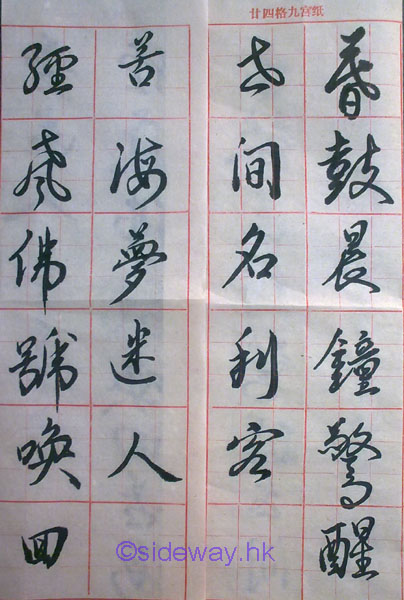 廿四格九宫纸
暮鼓晨鐘驚醒
世间名利客
苦海夢迷人
經聲佛號喚回
©sideway.hk